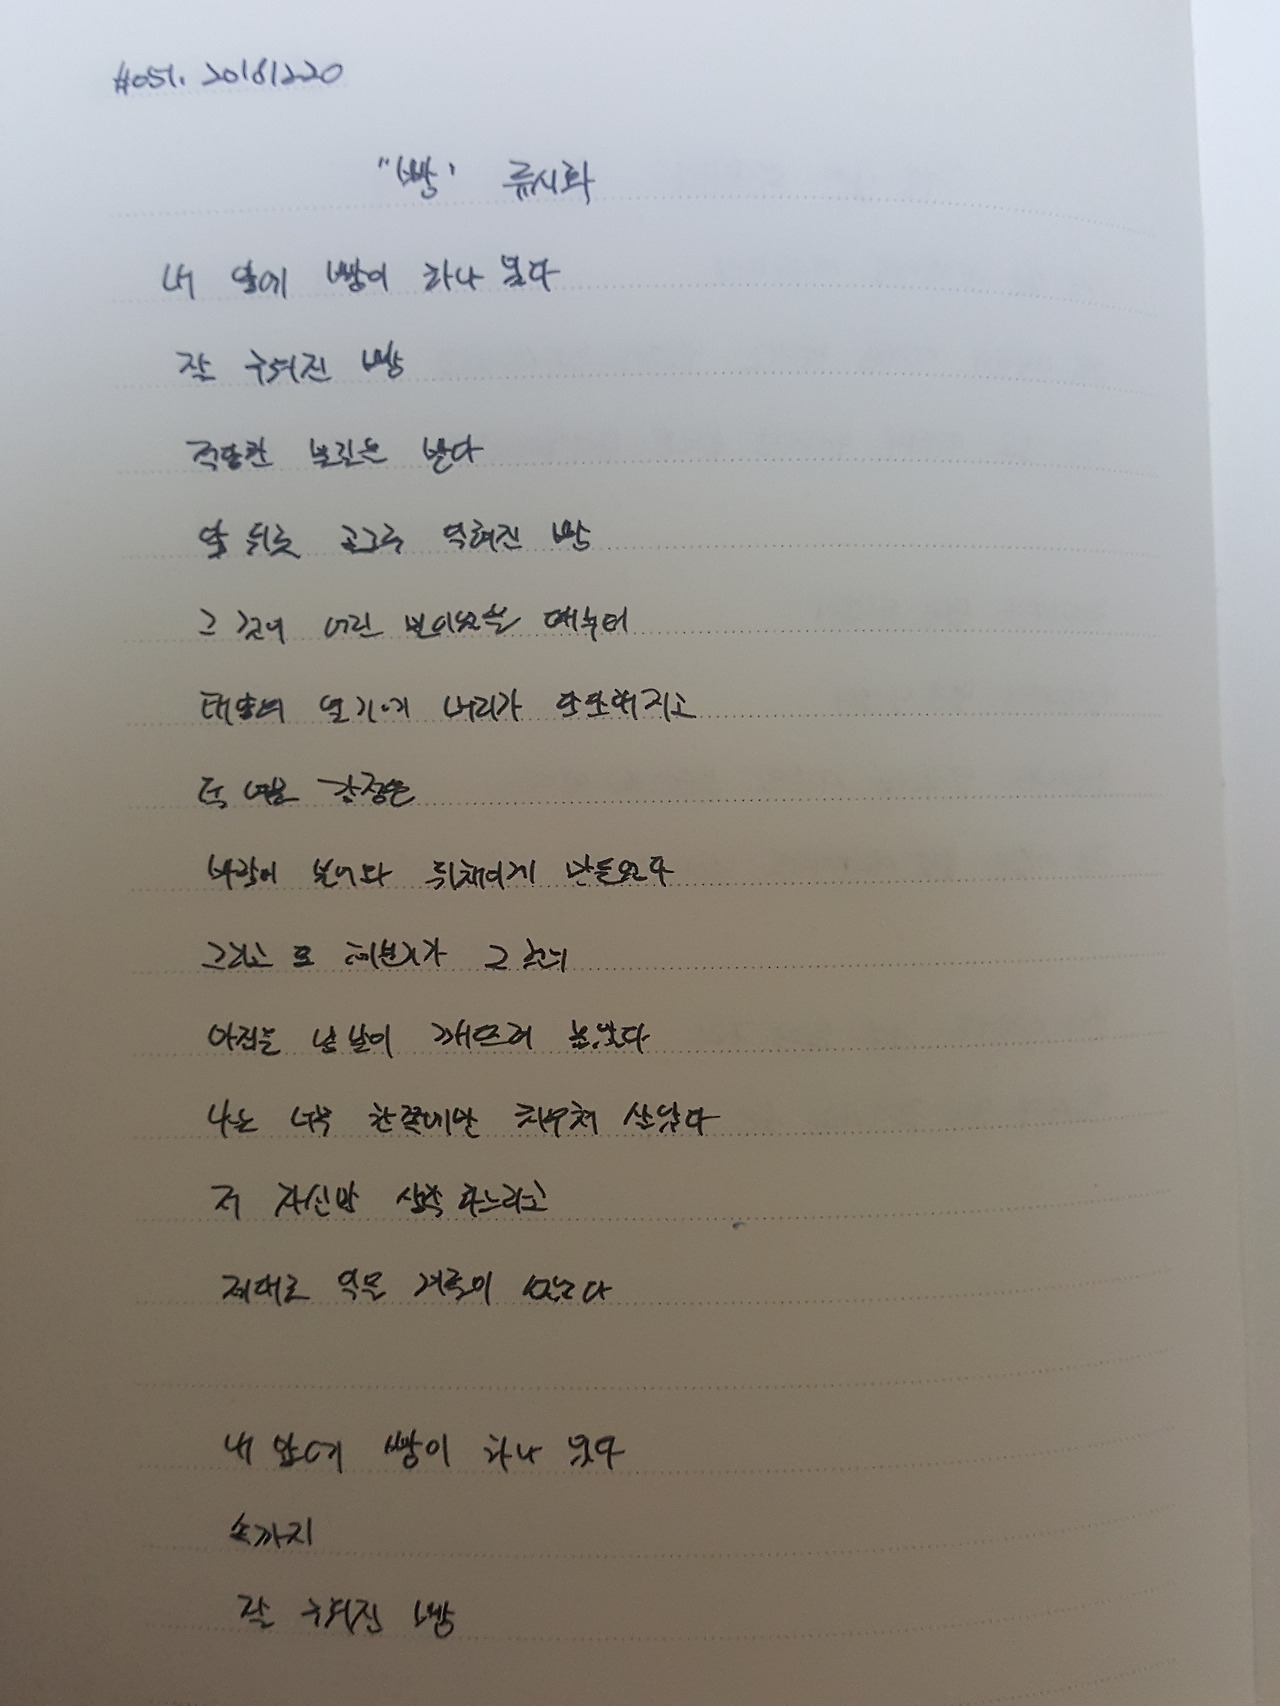 #051. 20161220
"빵' 류시화
내 앞에 빵이 하나 있다
잘 구워진 빵
적당한 불길을 받다
앞 뒤로 골고루 익혀진 빵
그 것이 어린 밀이었을 때부터
태양의 열기에 머리가 단단해지고
덜 여문 감정은
바람이 불어와 뒤채이게 만들었다
그리고 또 제분기가 그것의
아집을 낱낱이 깨뜨려 놓았다
나는 너무 한쪽에만 치우쳐 살았다
저 자신만 생각 하느라고
제대로 익은 겨를이 없었다
내 앞에 빵이 하나 있다
속까지
잘 구워진 빵